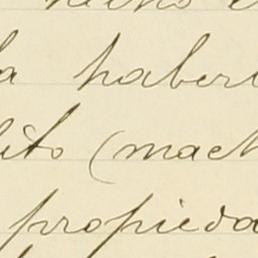 hecho
a haber
lito (mach
propieda